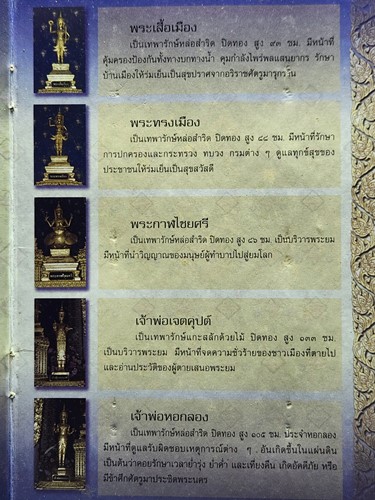 พระเสื้อเมือง
เป็นเทพารักษ์หล่อสำริด ปิดทอง สูง ๙๓ ซม. มีหน้าที่
คุ้มครองป้องกันทั้งทางบกทางน้ำ คุมกำลังไพร่พลแสนยากร รักษา
บ้านเมืองให้ร่มเย็นเป็นสุขปราศจากอริราชศัตรูมารุกราน
พระทรงเมือง
เป็นเทพารักษ์หล่อสำริด ปิดทอง สูง ๘๘ ซม. มีหน้าที่รักษา
การปกครองและกระทรวง ทบวง กรมต่าง ๆ ดูแลทุกข์สุขของ
ประชาชนให้ร่มเย็นเป็นสุขสวัสดี
พระกาฬไชยศรี
เป็นเทพารักษ์หล่อสำริด ปิดทอง สูง ๘๖ ซม. เป็นบริวารพระยม
มีหน้าที่นำวิญญาณของมนุษย์ผู้ทำบาปไปสู่ยมโลก
เจ้าพ่อเจตคุปต์
เป็นเทพารักษ์แกะสลักด้วยไม้ ปิดทอง สูง ๑๓๓ ซม.
เป็นบริวารพระยม มีหน้าที่จดความชั่วร้ายของชาวเมืองที่ตายไป
และอ่านประวัติของผู้ตายเสนอพระยม
เจ้าพ่อหอกลอง
เป็นเทพารักษ์หล่อสำริด ปิดทอง สูง ๑๐๕ ซม. ประจำหอกลอง
มีหน้าที่ดูแลรับผิดชอบเหตุการณ์ต่าง ๆ อันเกิดขึ้นในแผ่นดิน
เป็นต้นว่าคอยรักษาเวลาย่ำรุ่ง ย่ำค่ำ และเที่ยงคืน เกิดอัคคีภัย หรือ
มีข้าศึกศัตรูมาประชิดพระนคร